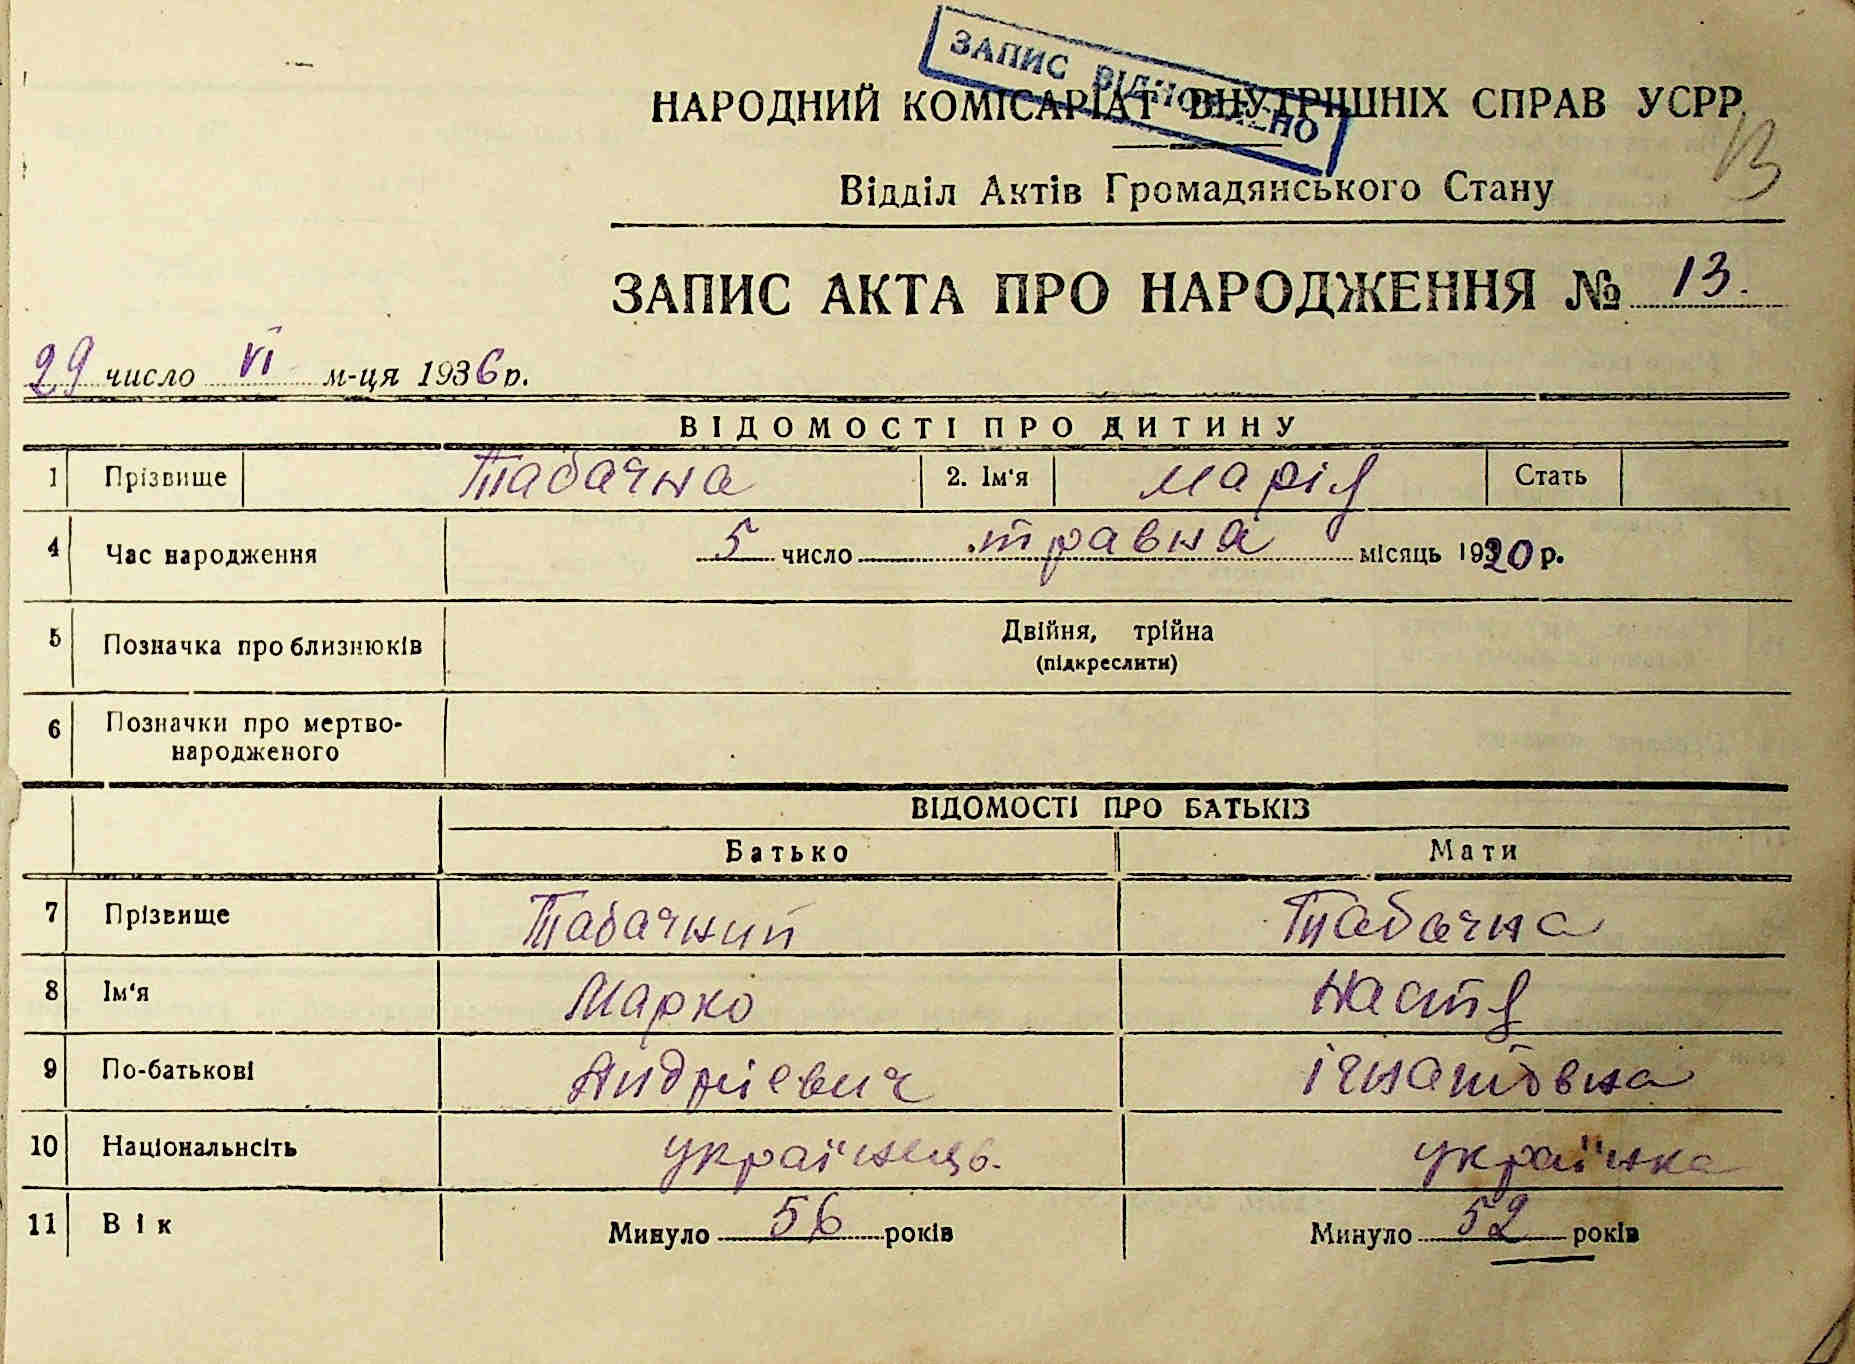 ЗАПИС ВІДНОВЛЕНО
НАРОДНИЙ КОМІСАРІАТ ВНУТРІШНІХ СПРАВ УСРР
13
Відділ Актів Громадянського Стану
ЗАПИС АКТА ПРО НАРОДЖЕННЯ № 13.
29 число VI м-ця 1936 р.
ВІДОМОСТІ ПРО ДИТИНУ
1 Прізвище Табачна 2. Ім'я Марія Стать
4 Час народження 5 число травна місяць 1920 р.
5 Позначка про близнюків Двійня, трійна
(підкреслити)
6 Позначки про мертво-
народженого
ВІДОМОСТІ ПРО БАТЬКІЗ
Батько Мати
7 Прізвище Табачний Табачна
8 Ім'я Марко Настя
9 По-батькові Андрієвич Ігнатовна
10 Національнсіть українець. українка
11 Вік Минуло 56 років Минуло 52 років